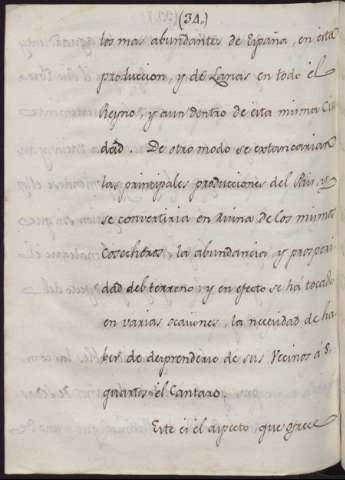 (34.)
los mas abundantes de España, en esta
produccion, y de Lanas en todo el
Reyno, y aun dentro de esta misma Ciu
dad. De otro modo se extancarian
las principales producciones del Pais, y
se convertiria en ruina de los mismos
Cosecheros, la abundancia, y prosperi
dad del terreno; y en efecto se há tocado
en varias ocasiones, la necesidad de ha
ber de desprenderse de sus Vecinos á 8.
quartos el Cantaro.
Este es el aspecto que ofrece